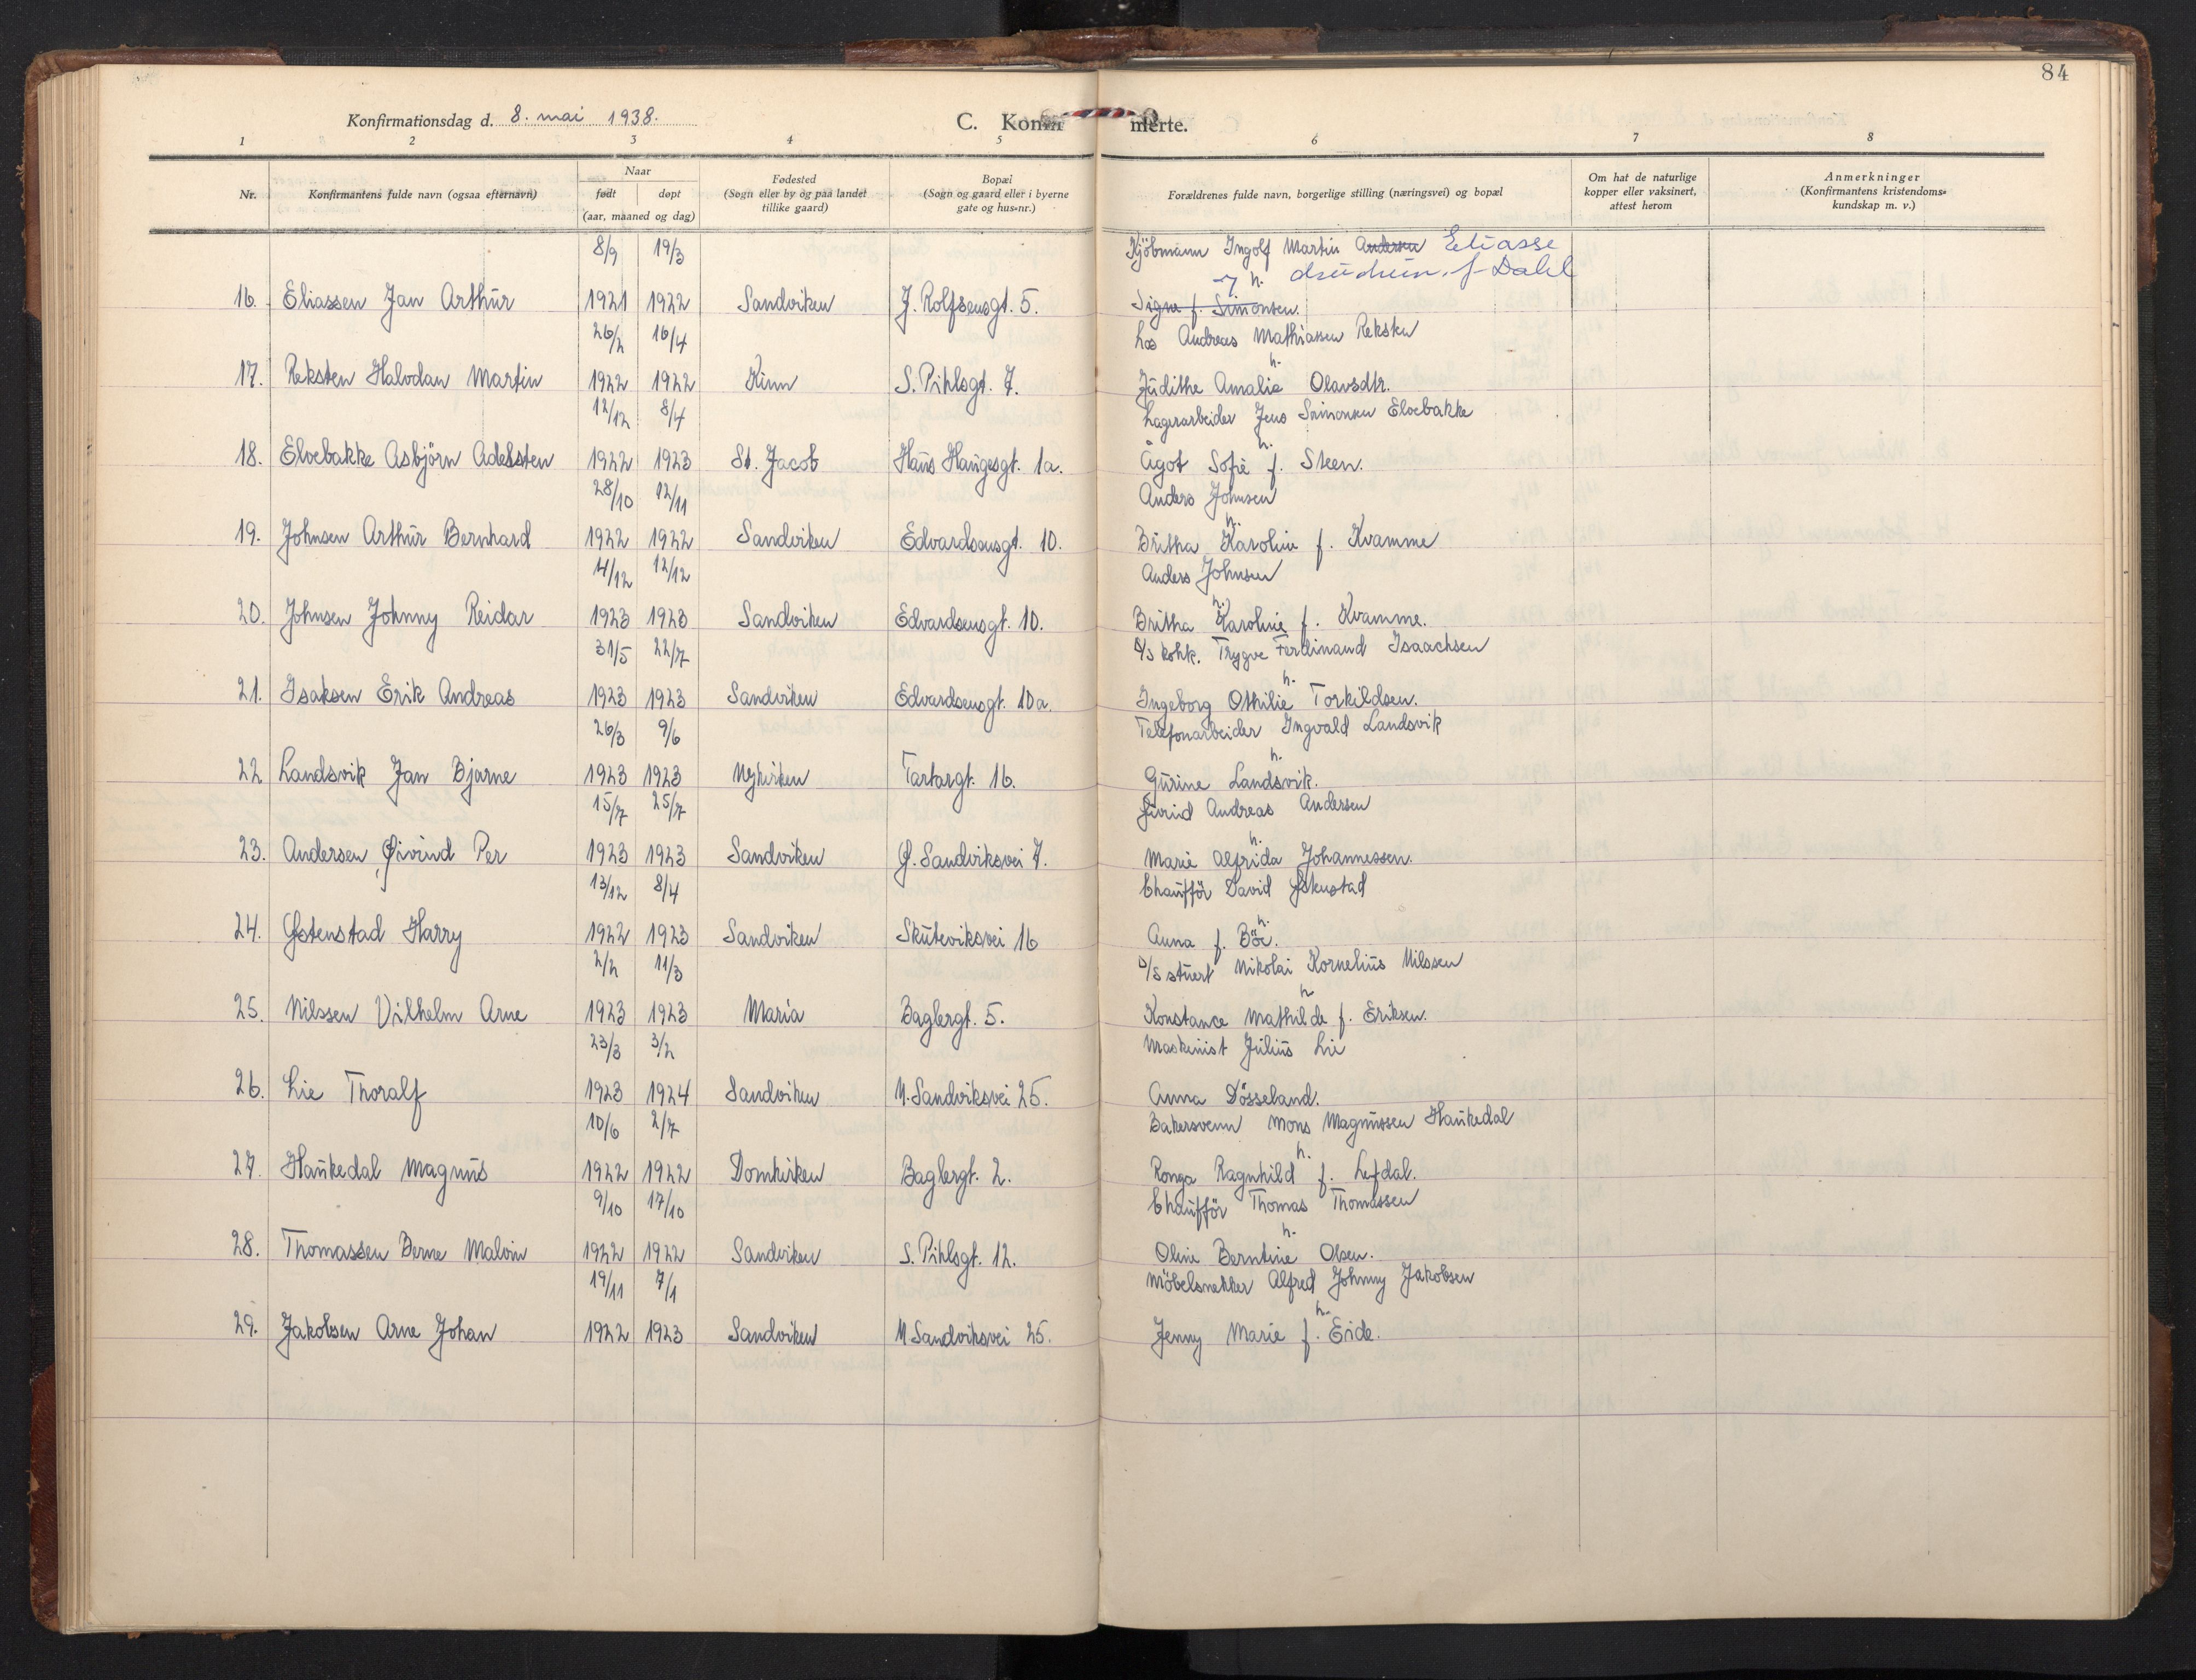 84
Konfirmationsdag d. 8. mai 1938.
C. Konfi merte.
1 2 3 4 5 6 7 8
Nr. Konfirmantens fulde navn (ogsaa efternavn) Naar født døpt (aar, maaned og dag) Fødested (Sogn eller by og paa landet tillike gaard) Bopæl (Sogn og gaard eller i byerne gate og hus-nr.) Forældrenes fulde navn, borgerlige stilling (næringsvei) og bopæl Om hat de naturlige kopper eller vaksinert, attest herom Anmerkninger (Konfirmantens kristendoms-kundskap m. v.)
8/9 19/3 Kjöbmann Ingolf Martin Andersen Eliasse
h. f. Dahl
16. Eliassen Jan Arthur 1921 1922 Sandviken J. Rolfsensgt. 5. Signe f. Simonsen.
26/2 16/4 Los Andreas Mathiassen Reksten
h.
17. Reksten Halvdan Martin 1922 1922 Kinn S. Pihlsgt. 7. Judithe Amalie Olavsdtr.
12/12 8/4 Lagerarbeider Jens Simonsen Elvebakke
h.
18. Elvebakke Asbjörn Adelsten 1922 1923 St. Jacob Hans Haugesgt. 1a. Ågot Sofie f. Steen.
28/10 12/11 Anders Johnsen
h.
19. Johnsen Arthur Bernhard 1922 1922 Sandviken Edvardsensgt. 10. Britha Karoline f. Kvamme
4/12 12/12 Anders Johnsen
h.
20. Johnsen Johnny Reidar 1923 1923 Sandviken Edvardsensgt. 10. Britha Karoline f. Kvamme.
31/5 22/7 D/S kokk. Trygve Ferdinand Isaachsen
h.
21. Isaksen Erik Andreas 1923 1923 Sandviken Edvardsensgt. 10a. Ingeborg Othilie Torkildsen.
26/3 9/6 Telefonarbeider Ingvald Landsvik
h.
22 Landsvik Jan Bjarne 1923 1923 Nykirken Tartargt. 16. Gurine Landsvik.
15/7 25/7 Andreas Andersen
h.
23. Andersen Øivind Per 1923 1923 Sandviken Ø. Sandviksvei 7. Marie Alfrida Johannessen.
13/12 8/4 Chaufför David Østenstad
h.
24. Østenstad Harry 1922 1923 Sandviken Skuteviksvei 16 Anna f. Böe.
2/2 11/3 D/S stuert Nikolai Kornelius Nilssen
h
25. Nilssen Vilhelm Arne 1923 1923 Maria Baglergt. 5. Konstance Mathilde f. Eriksen.
23/3 3/2 Maskinist Julius Lie
26. Lie Thoralf 1923 1924 Sandviken N. Sandviksvei 25. Anna Dösseland.
10/6 2/7 Bakersvenn Mons Magnussen Haukedal
h.
27. Haukedal Magnus 1922 1922 Domkirken Baglergt. 2. Ronga Ragnhild f. Lefdal.
9/10 17/10 Chaufför Thomas Thomassen
h.
28. Thomassen Berne Malvin 1922 1922 Sandviken S. Pihlsgt. 12. Oline Berntine Olsen.
19/11 7/1 Möbelsnekker Alfred Johnny Jakobsen
h.
29. Jakobsen Arne Johan 1922 1923 Sandviken N Sandviksvei 25. Jenny Marie f. Eide.